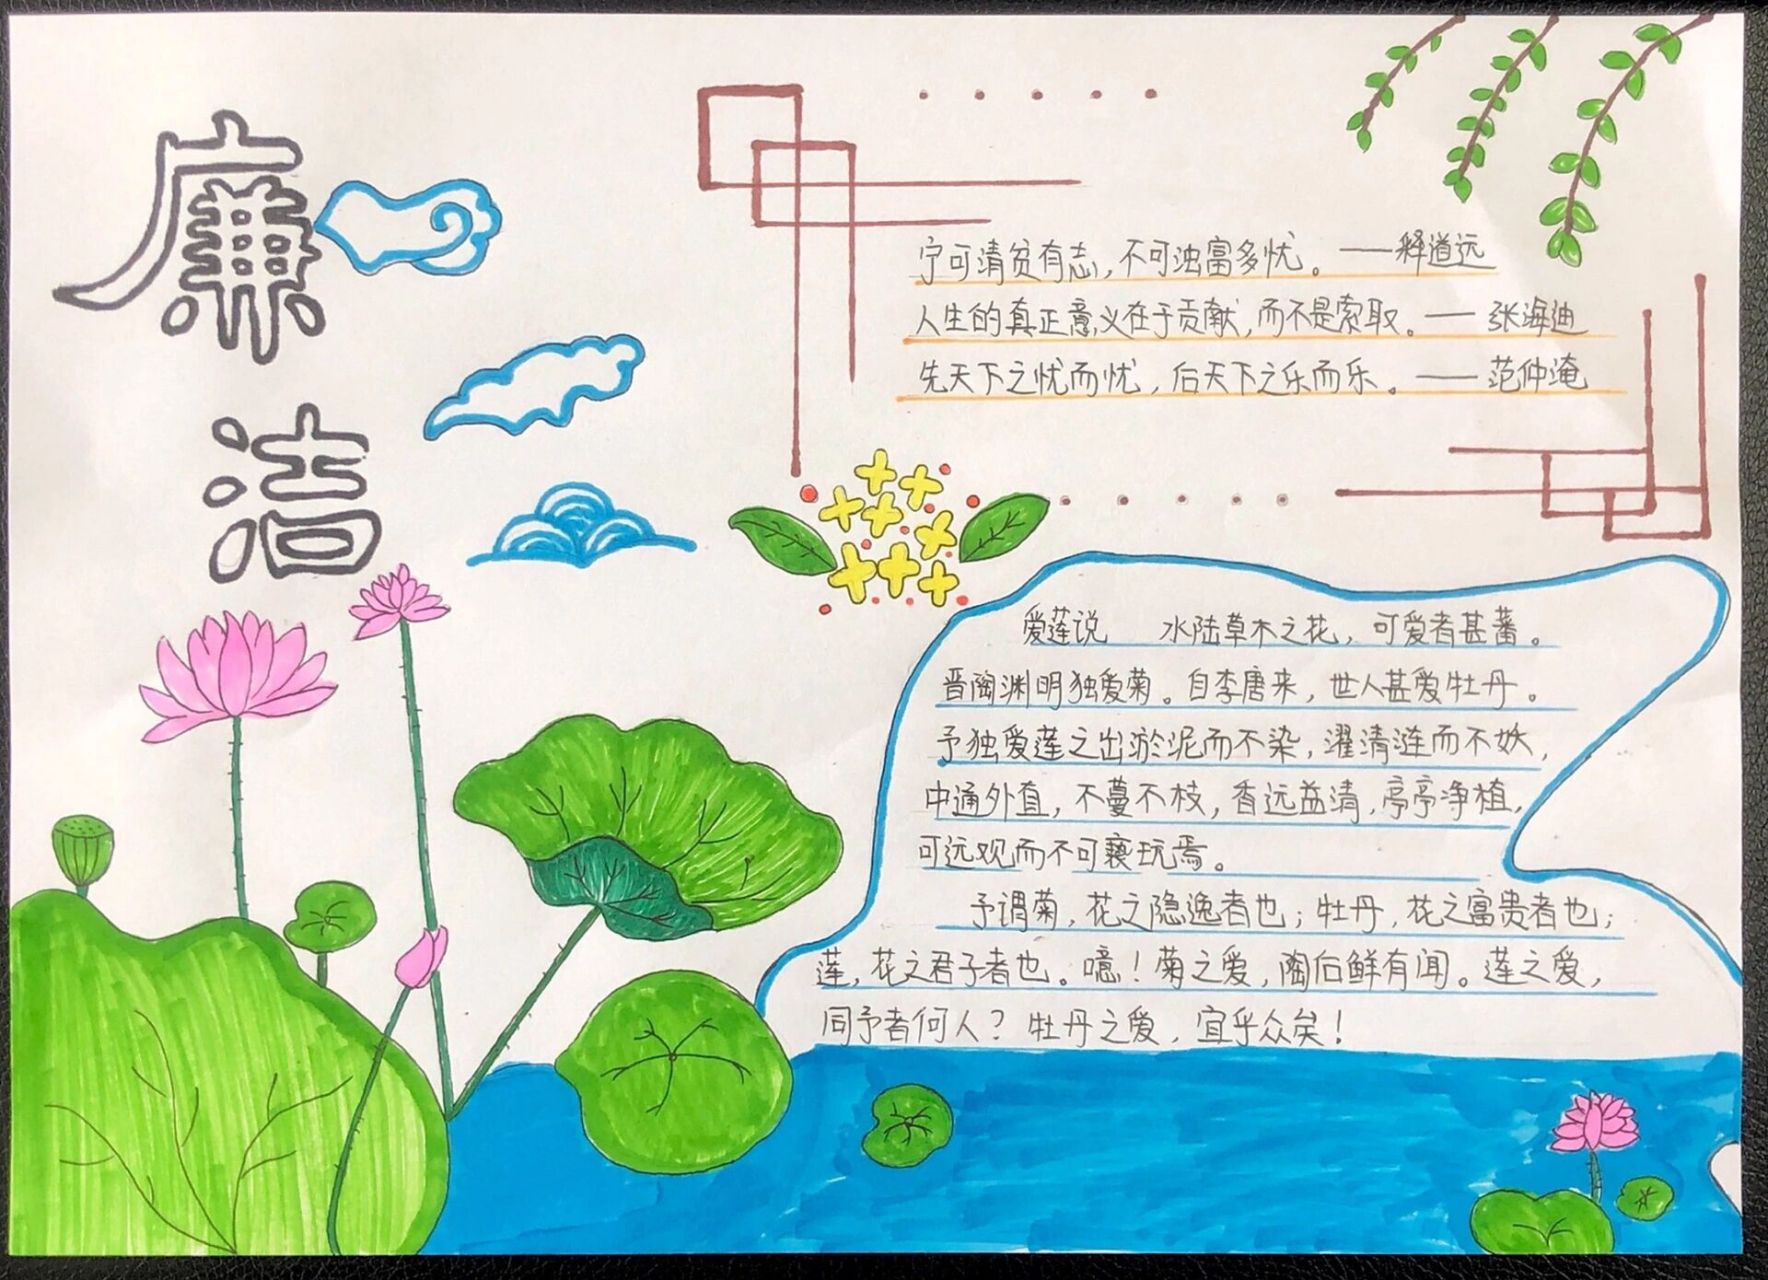 廉
洁
宁可清贫有志，不可浊富多忧。——释道远
人生的真正意义在于贡献，而不是索取。——张海迪
先天下之忧而忧，后天下之乐而乐。——范仲淹
爱莲说　水陆草木之花，可爱者甚蕃。
晋陶渊明独爱菊。自李唐来，世人甚爱牡丹。
予独爱莲之出淤泥而不染，濯清涟而不妖，
中通外直，不蔓不枝，香远益清，亭亭净植，
可远观而不可亵玩焉。
予谓菊，花之隐逸者也；牡丹，花之富贵者也；
莲，花之君子者也。噫！菊之爱，陶后鲜有闻。莲之爱，
同予者何人？牡丹之爱，宜乎众矣！